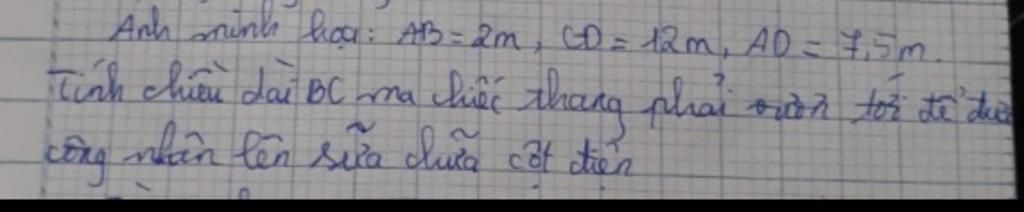 Anh minh hoạ: AB = 2m, CD = 12m, AD = 7,5m.
Tính chiều dài BC mà chiếc thang phải vươn tới để đưa
công nhân lên sửa chữa cột điện